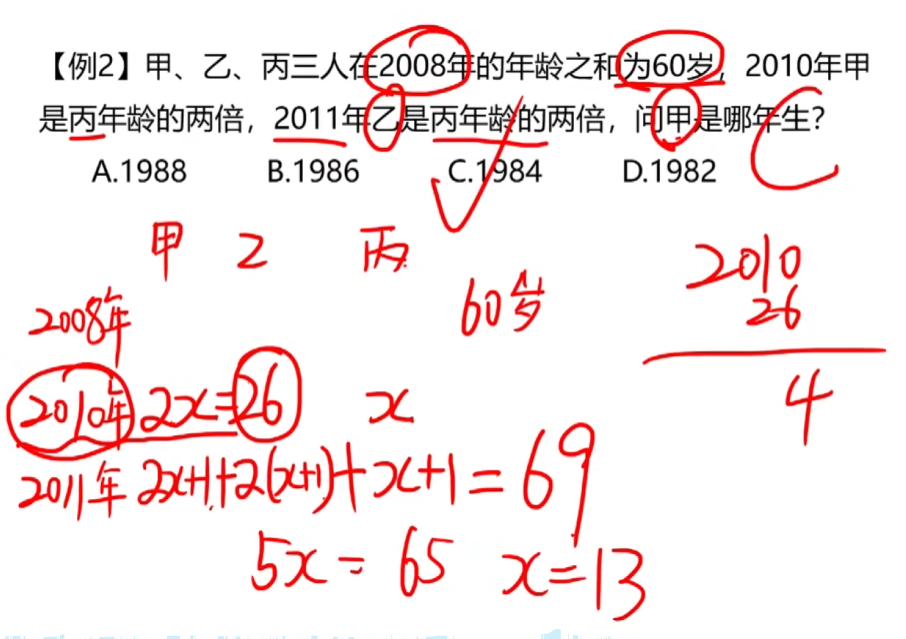 【例2】甲、乙、丙三人在2008年的年龄之和为60岁，2010年甲
是丙年龄的两倍，2011年乙是丙年龄的两倍，问甲是哪年生?
A.1988 B.1986 C.1984 D.1982
甲 乙 丙
2008年 60岁
2010年 2x=26 x
2011年 2x+1+2(x+1)+x+1=69
5x=65 x=13
2010
26
4